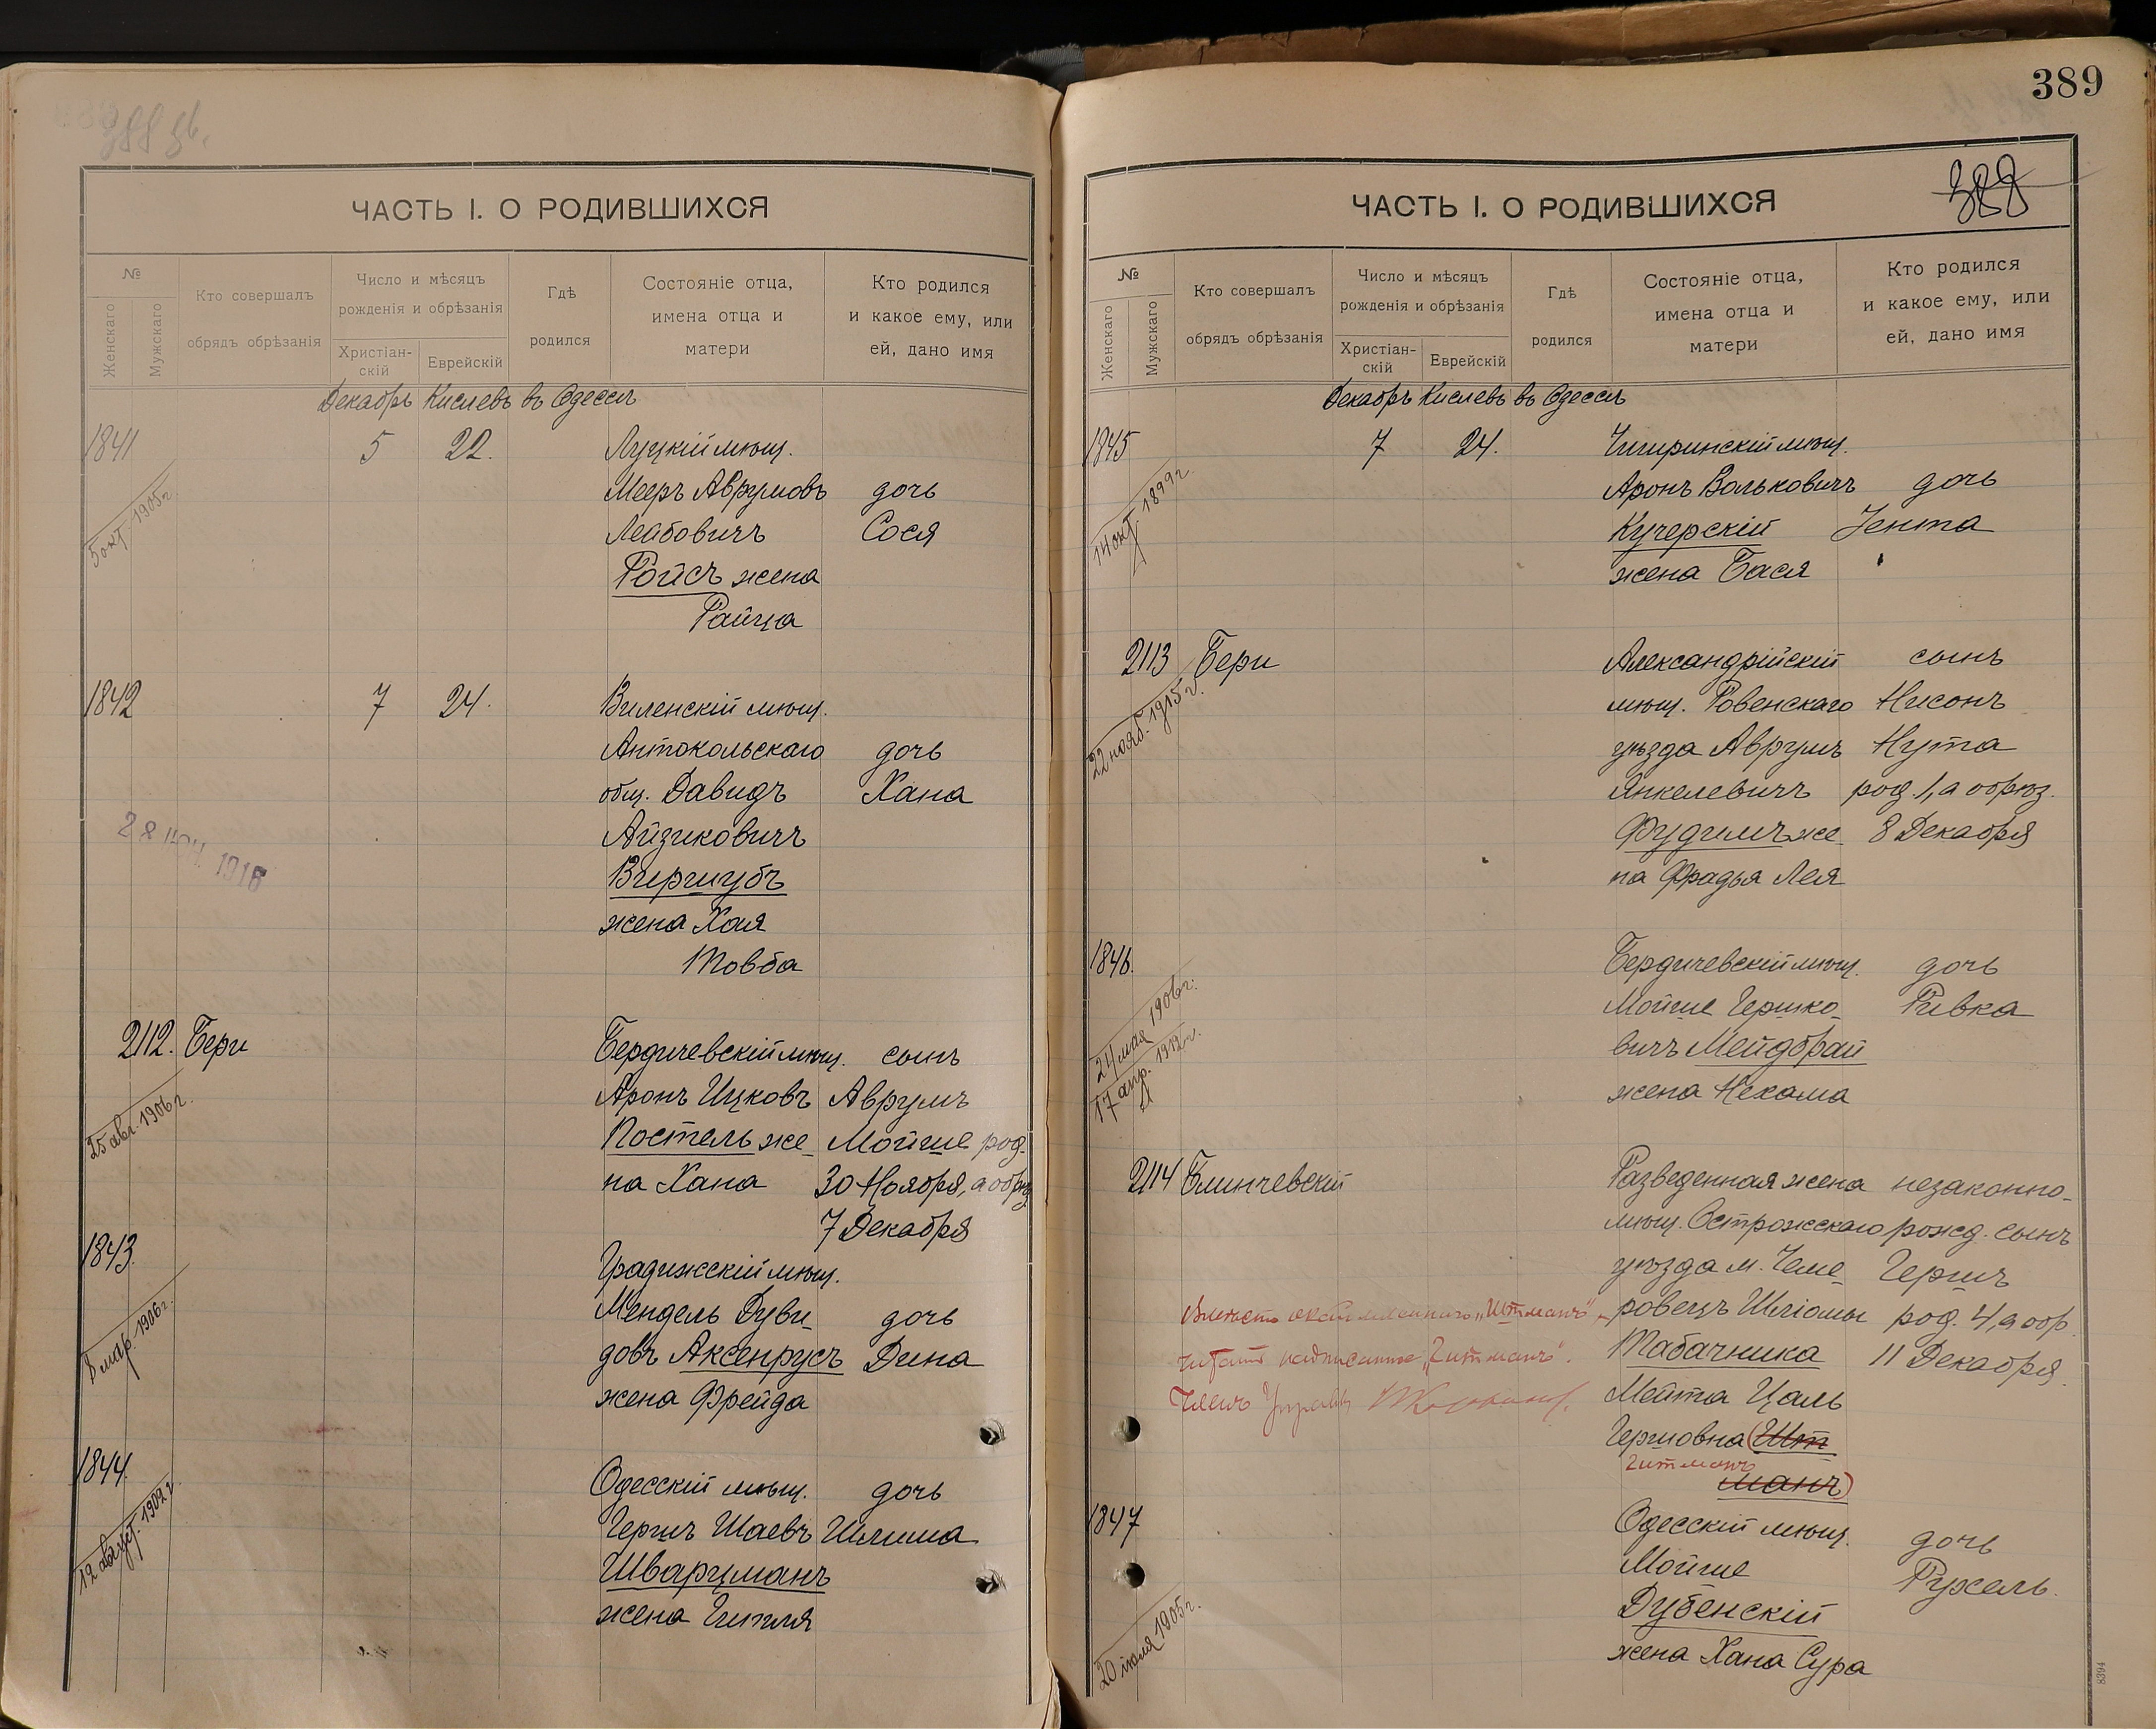 388 зв.
ЧАСТЬ I. О РОДИВШИХСЯ
№
Женскаго
Мужскаго
Кто совершалъ
обрядъ обрѣзанія
Число и мѣсяцъ
рожденія и обрѣзанія
Христіан-
скій
Еврейскій
Гдѣ
родился
Состояніе отца,
имена отца и
матери
Кто родился
и какое ему, или
ей, дано имя
Декабрь Кислевъ въ Одессѣ
1841 5 22. Луцкій мѣщ.
Мееръ Аврумовъ дочь
5 окт. 1905 г.
Лейбовичъ Сося
Ройсъ жена
Райца
1842 7 24. Виленскій мѣщ.
Антокольскаго дочь
общ. Давидъ Хана
Айзиковичъ
28 1916
Виршубъ
жена Хая
Товба
2112. Бери Бердичевскій мѣщ. сынъ
Аронъ Ицковъ Аврумъ
25 авг. 1906 г.
Постель же- Мойше род.
на Хана 30 Ноября, а обрѣз
7 Декабря
1843. Градижскій мѣщ.
Мендель Дуви- дочь
8 мар. 1906 г.
довъ Аксенрусъ Дина
жена Фрейда
1844. Одесскій мѣщ. дочь
Гершъ Шаевъ Шлима
12 август. 1902 г.
Шварцманъ
жена Гитля
389
388
ЧАСТЬ I. О РОДИВШИХСЯ
№
Женскаго
Мужскаго
Кто совершалъ
обрядъ обрѣзанія
Число и мѣсяцъ
рожденія и обрѣзанія
Христіан-
скій
Еврейскій
Гдѣ
родился
Состояніе отца,
имена отца и
матери
Кто родился
и какое ему, или
ей, дано имя
Декабрь Кислевъ въ Одессѣ
1845 7 24. Чигиринскій мѣщ.
Аронъ Вольковичъ дочь
14 окт. 1899 г.
Кучерскій Іента
жена Бася
2113 Бери Александрійскій сынъ
мѣщ. Ровенскаго Нисонъ
22 нояб. 1915 г.
уѣзда Аврумъ Нута
Янкелевичъ род. 1, а обрѣз.
Фудимъ же- 8 Декабря
на Фрадья Лея
1846. Бердичевскій мѣщ. дочь
Мойше Гершко- Ривка
24 мая 1906 г.
17 апр. 1912 г.
вичъ Мейдбрай
жена Нехама
2114 Блинчевскій Разведенная жена незаконно-
мѣщ. Острожскаго рожд. сынъ
уѣзда м. Чеме- Гершъ
Вмѣсто "Штманъ" ровецъ Шліомы род. 4, а обр.
читать надписанное "Гитманъ". Табачника 11 Декабря
Членъ Управы Мейта Цаль
Гершовна (Шт
Гитманъ
манъ)
1847 Одесскій мѣщ. дочь
Мойше Рухель.
20 іюля 1905 г.
Дубенскій
жена Хана Сура
8394